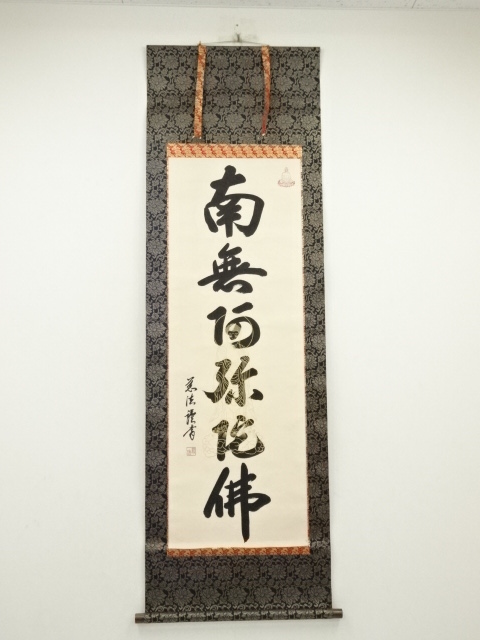 南無阿弥陀佛
慈法謹書